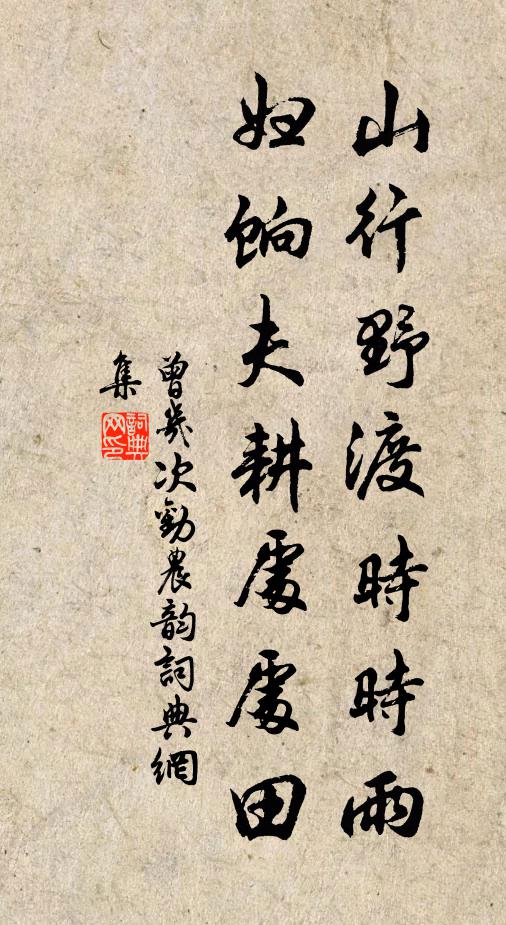 山行野渡時時雨
妇餉夫耕處處田
曾幾次勸農韵詞典網
集
詞典網印